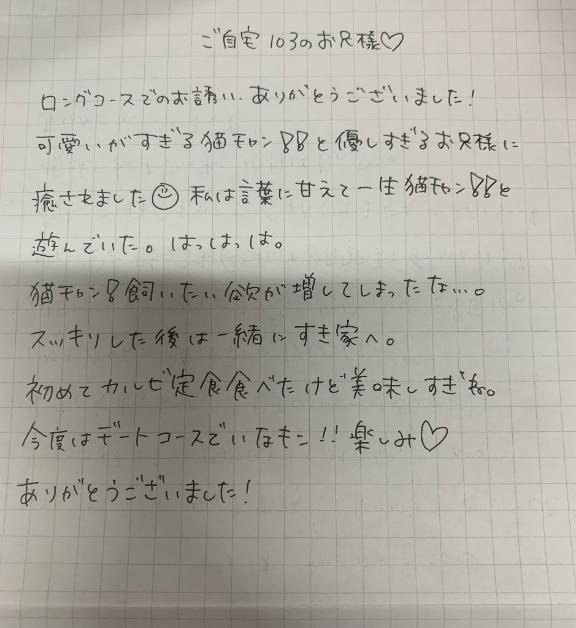 ご自宅103のお兄様♡
ロングコースでのお誘い、ありがとうございました!
可愛いがすぎる猫チャン!!と優しすぎるお兄様に
癒されました☺ 私は言葉に甘えて一生猫チャン!!と
遊んでいた。はっはっは。
猫チャン!飼いたい欲が増してしまったな…。
スッキリした後は一緒にすき家へ。
初めてカルビ定食食べたけど美味しすぎ。
今度はデートコースで!!楽しみ♡
ありがとうございました!